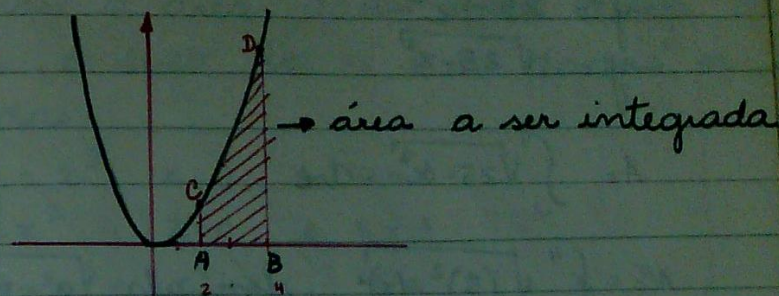 D
→ área a ser integrada
C
A B
2 4